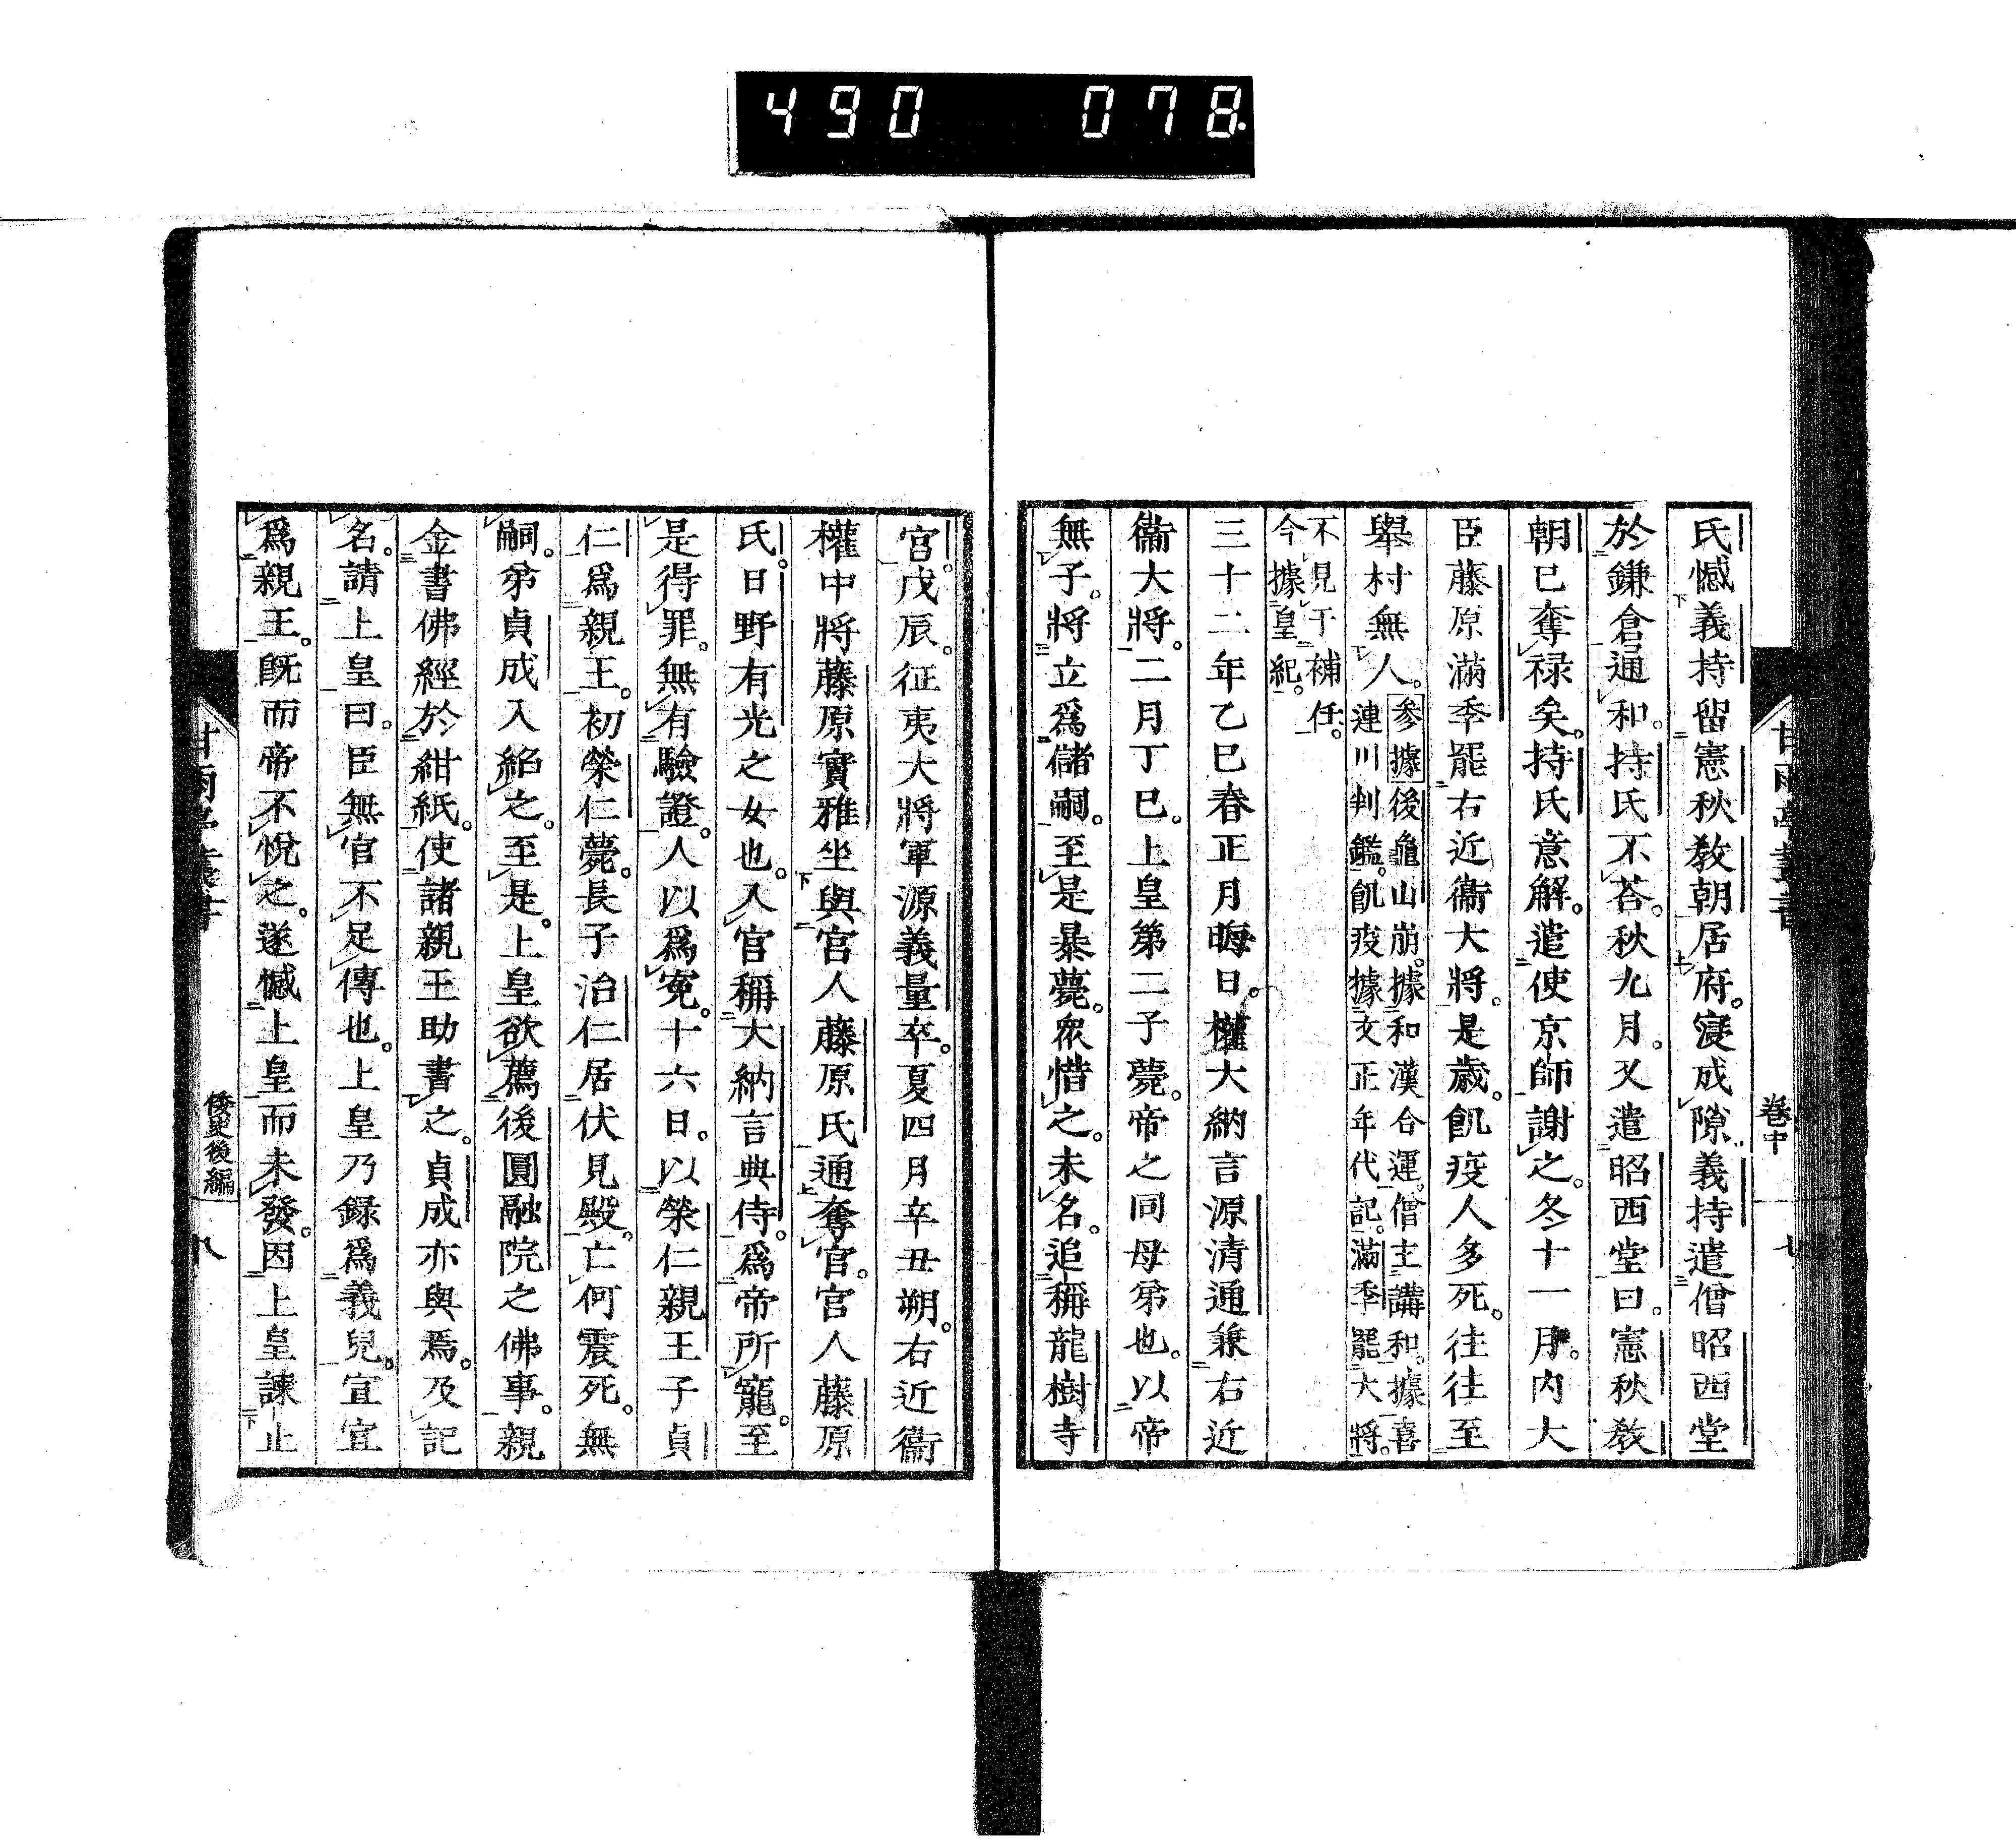 490 078
氏憾義持留憲秋敎朝居府。寖成隙。義持遣僧昭西堂
於鎌倉通和。持氏不荅。秋九月。又遣昭西堂曰。憲秋敎
朝已奪祿矣。持氏意解。遣使京師謝之。冬十一月。內大
臣藤原滿季罷右近衞大將。是歲。飢疫人多死。往往至
擧村無人。參據後龜山崩。據和漢合運。僧主講和。據喜
連川判鑑。飢疫據文正年代記。滿季罷大將。
不見于補任。
今據皇紀。
三十二年乙巳春正月晦日。權大納言源清通兼右近
衞大將。二月丁巳。上皇第二子薨。帝之同母弟也。以帝
無子。將立爲儲嗣。至是暴薨。衆惜之。未名。追稱龍樹寺
甘雨亭叢書
卷中
七
宮。戊辰。征夷大將軍源義量卒。夏四月辛丑朔。右近衞
權中將藤原實雅坐與宮人藤原氏通奪官。宮人藤原
氏。日野有光之女也。入宮稱大納言典侍。爲帝所寵。至
是得罪。無有驗證。人以爲寃。十六日。以榮仁親王子貞
仁爲親王。初榮仁薨。長子治仁居伏見殿。亡何震死。無
嗣。弟貞成入紹之。至是。上皇欲薦後圓融院之佛事。親
金書佛經於紺紙。使諸親王助書之。貞成亦與焉。及記
名。請上皇曰。臣無官不足傳也。上皇乃錄爲義兒。宜宜
爲親王。旣而帝不悅之。遂憾上皇而未發。因上皇諫止
甘雨亭叢書
倭史後編
八